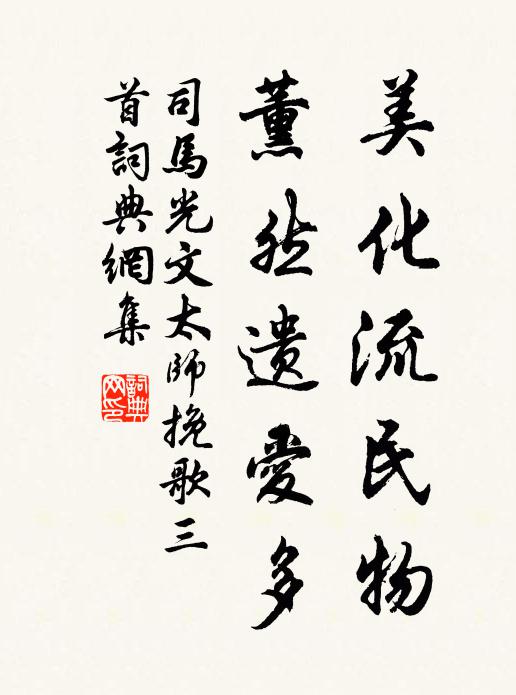 美化流民物
薰然遺愛多
司馬光文太師挽歌三
首詞典網集
詞典網印